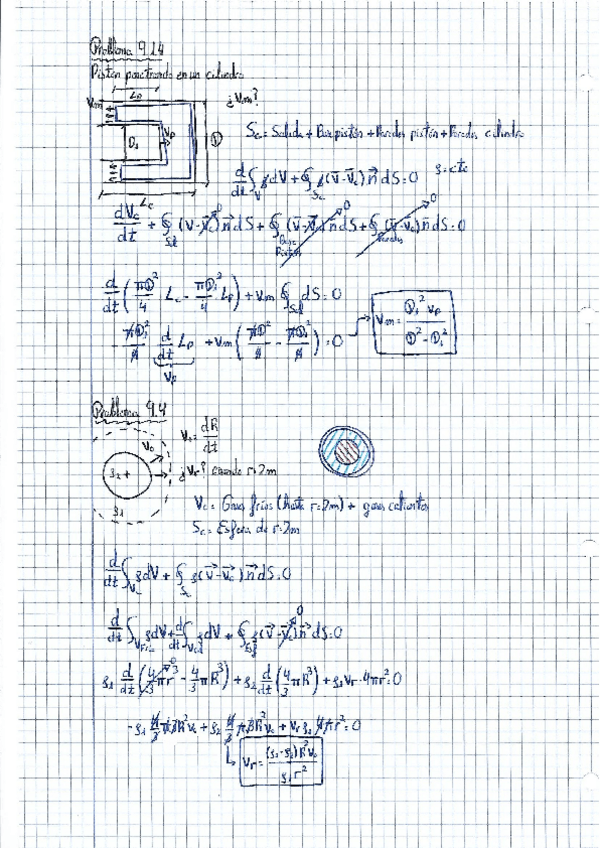 Problema 9.14
Piston penetrando en un cilindro
Lp
Vm
D₁
Vp
D
Lc
¿Vm?
Sc = Salida + Base piston + Paredes piston + Paredes cilindro
d/dt ∫_V ρ dV + ∮_Sc ρ(v̄ - v̄c) n̄ dS = 0   ρ = cte
dVc/dt + ∮_Sal (v̄ - v̄c)⁰ n̄ dS + ∮_Base Piston (v̄ - v̄c)⁰ n̄ dS + ∮_Paredes (v̄ - v̄c)⁰ n̄ dS = 0
d/dt (πD²/4 Lc - πD₁²/4 Lp) + Vm ∮_Sal dS = 0
- πD₁²/4 d/dt Lp + Vm (πD²/4 - πD₁²/4) = 0 → Vm = D₁² Vp / D² - D₁²
Vp
Problema 9.4
V₀ = dR/dt
V₀
ρ₂
ρ₁
¿Vr? cuando r=2m
Vc = Gases fríos (hasta r=2m) + gases calientes
Sc = Esfera de r=2m
d/dt ∫_Vc ρ dV + ∮_Sc ρ(v̄ - v̄c) n̄ dS = 0
d/dt ∫ ρ dV + d/dt ∫ ρ dV + ∮ ρ(v̄ - v̄c)⁰ n̄ dS = 0
ρ₁ d/dt (4/3 πr³⁰ - 4/3 πR³) + ρ₂ d/dt (4/3 πR³) + ρ₁ Vr · 4πr² = 0
-ρ₁ 4/3 π3R² V₀ + ρ₂ 4/3 π3R² V₀ + Vr ρ₁ 4πr² = 0
↳ Vr = (ρ₁ - ρ₂) R² V₀ / ρ₁ r²